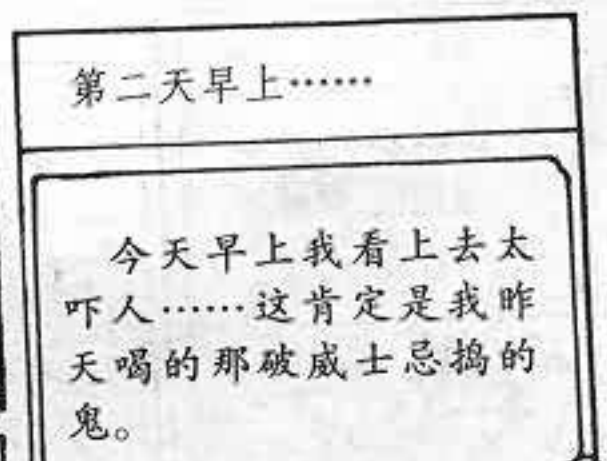 第二天早上……
今天早上我看上去太
吓人……这肯定是我昨
天喝的那破威士忌捣的
鬼。